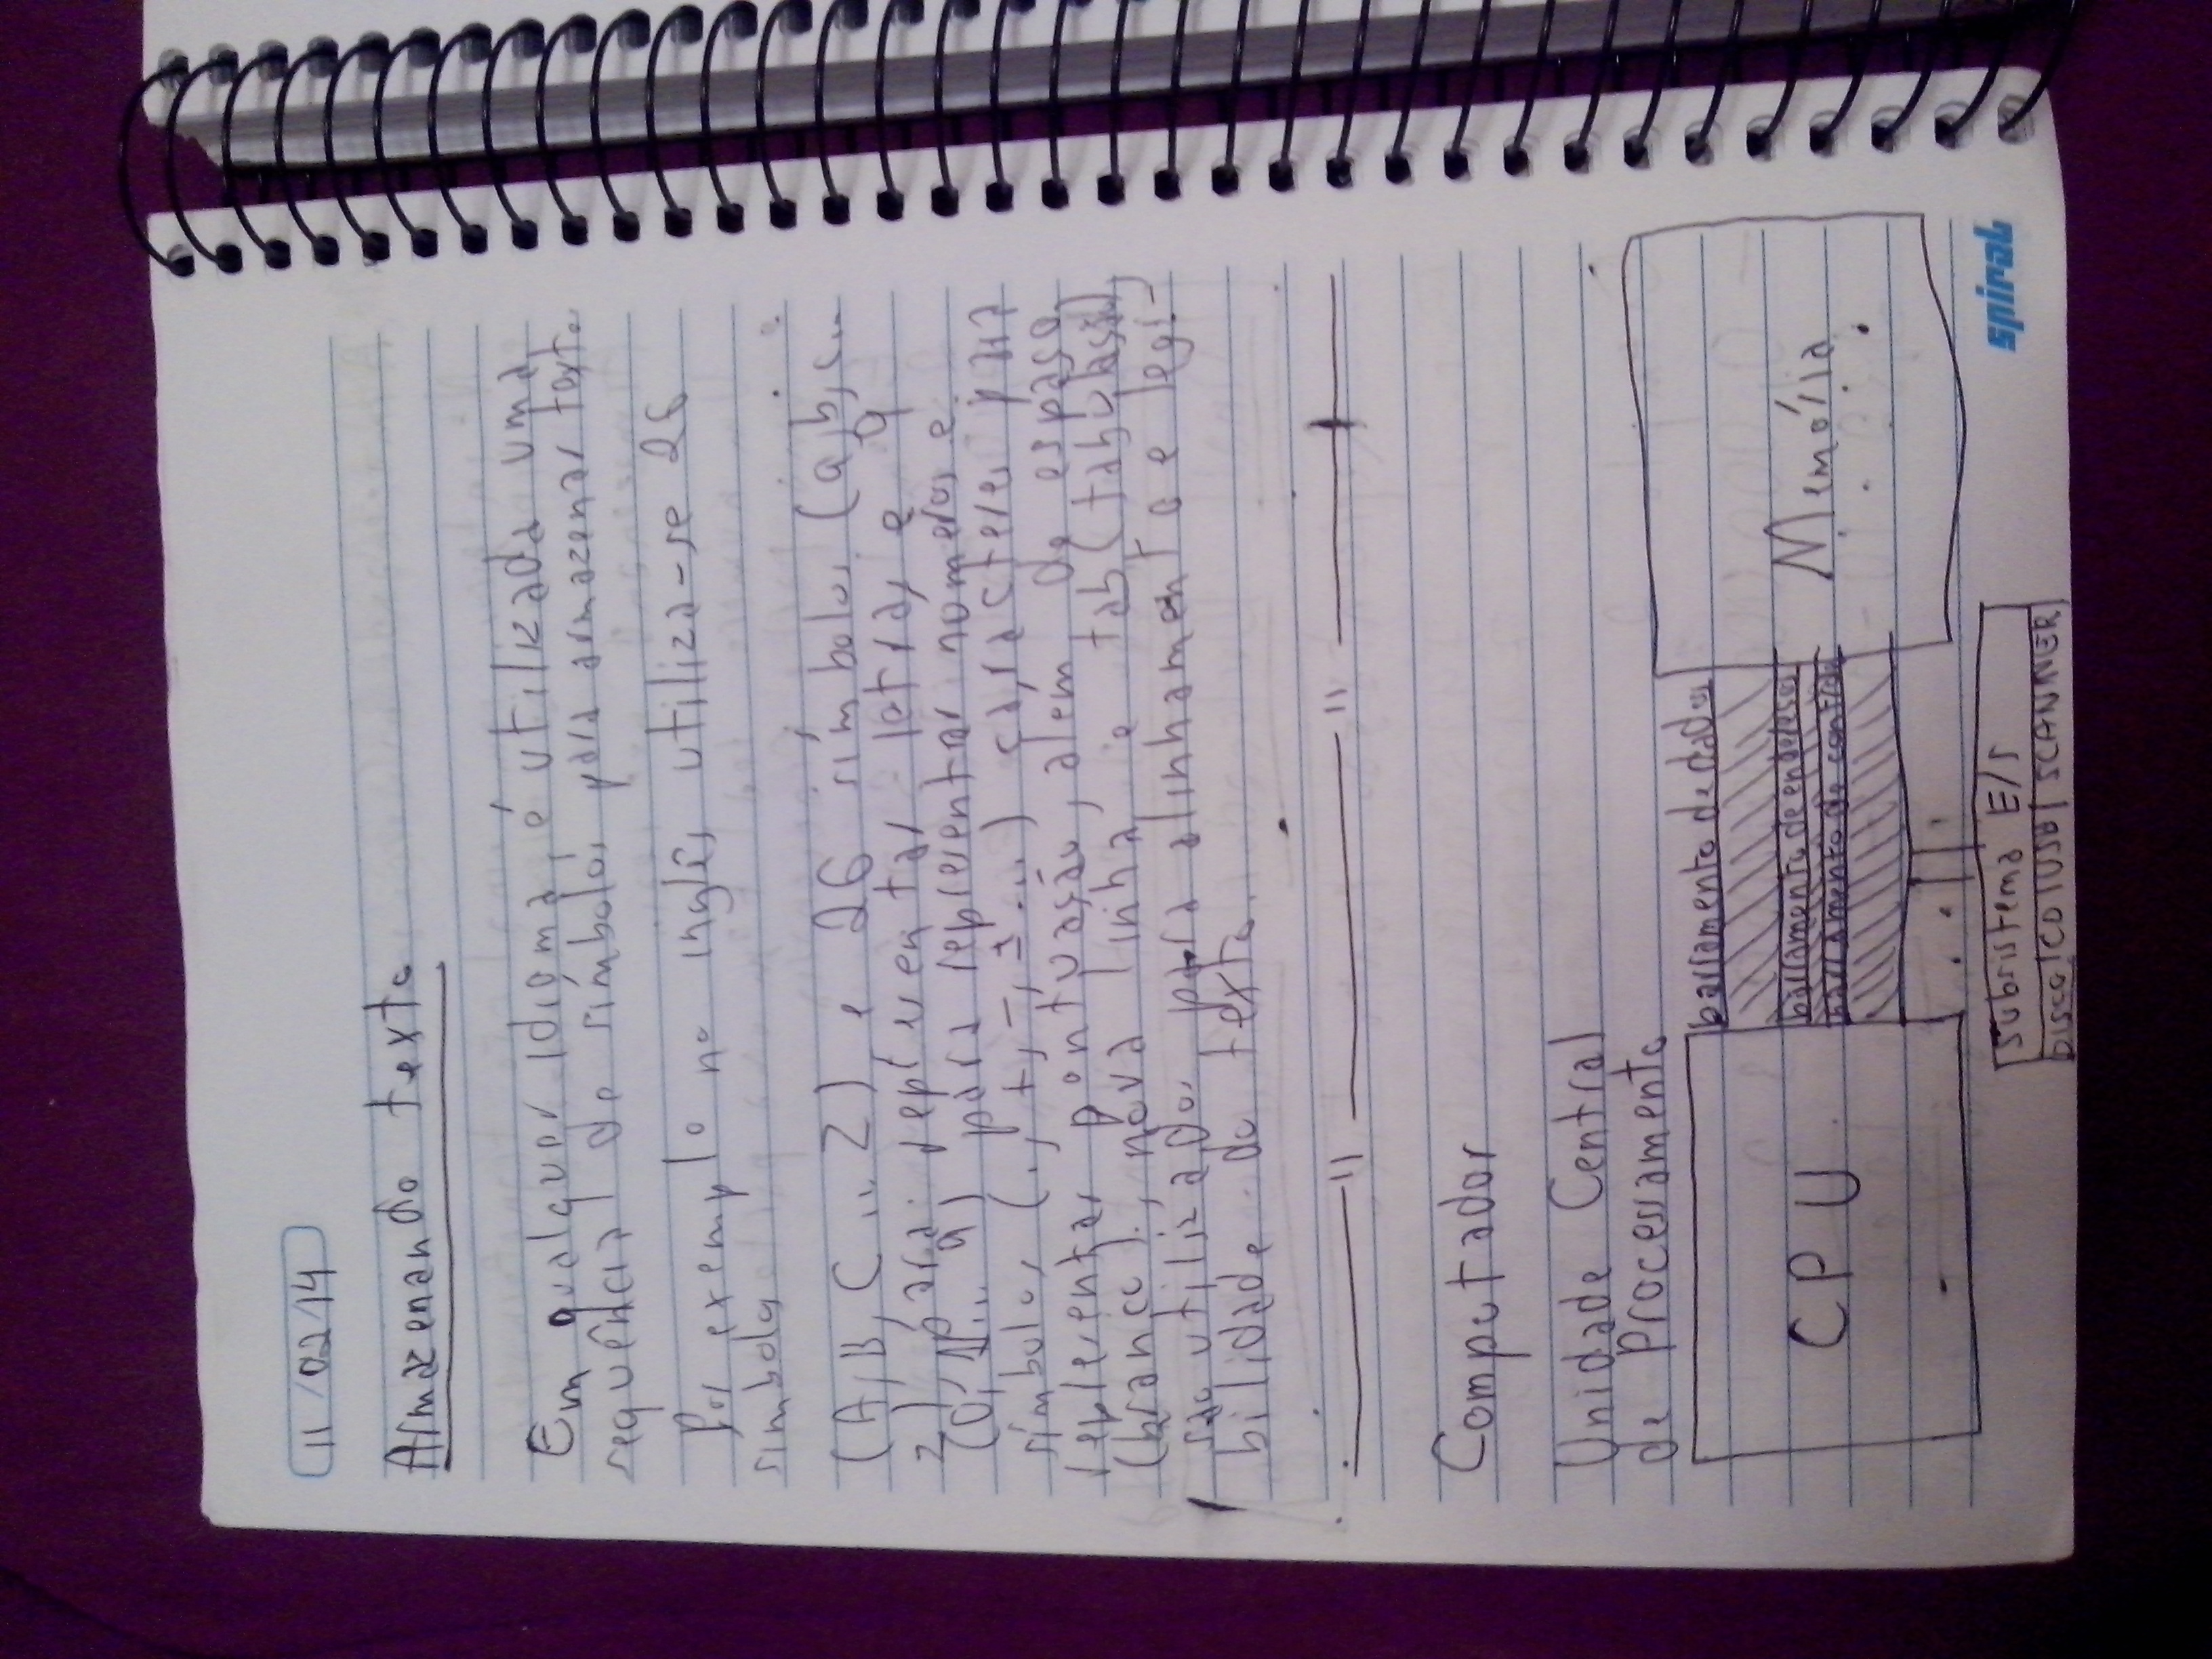 11/02/14
Armazenando texto
Em qualquer idioma, é utilizada uma
sequência de símbolos para armazenar texto
Por exemplo no inglês utiliza-se 26
simbolos
(A, B, C ... Z), e 26 símbolos (a, b, c...
z), para representar letras e 9
(0, 1... 9) para representar números e
símbolos (., +, -, ± ...) caracteres para
representar pontuação, além de espaço
(branco), nova linha e tab (tabulação),
são utilizados para alinhamento e legi-
bilidade do texto.
Computador
Unidade Central
de Processamento
barramento de dados
barramento de endereços
barramento de controle
CPU
Memória
Subsistema E/S
DISCO/CD/USB/ SCANNER
spiral